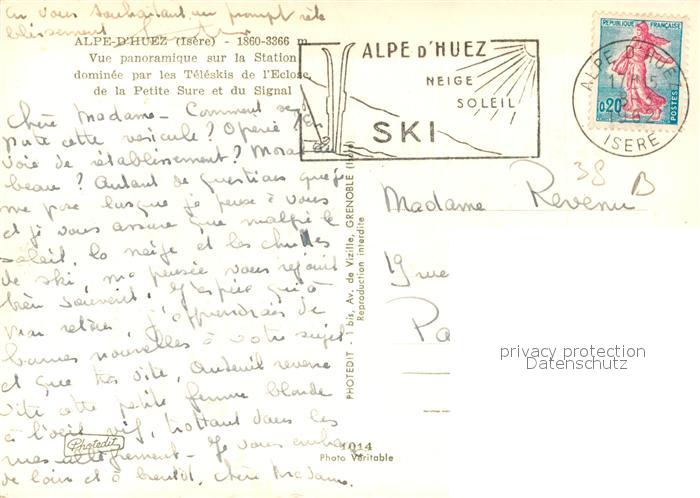 en vous souhaitant un prompt réta
blissement
ALPE-D'HUEZ (Isère) - 1860-3366 m
Vue panoramique sur la Station
dominée par les Téléskis de l'Eclose,
de la Petite Sure et du Signal
Chère Madame - Comment se
porte cette vésicule? Opérée? En
voie de rétablissement? Moral au
beau? Autant de questions que je
me pose lorsque je pense à vous
et je vous assure que malgré le
soleil, la neige et les chutes
de ski, ma pensée vous rejoint
bien souvent. J'espère qu'à
mon retour, j'apprendrai de
bonnes nouvelles à votre sujet
et que très vite, Auteuil reverra
vite cette petite femme blonde
à l'oeil vif, trottant dans les
rues allègrement - Je vous embrasse
de loin et à bientôt, chère Madame.
Photedit
ALPE D'HUEZ
NEIGE
SOLEIL
SKI
REPUBLIQUE FRANÇAISE
0,20
POSTES
ALPE D'HUEZ
ISERE
38 B
PHOTEDIT - 1 bis, Av. de Vizille, GRENOBLE (Isère)
Reproduction interdite
Madame Revenu
19 rue
Pa
1014
Photo Véritable
privacy protection
Datenschutz